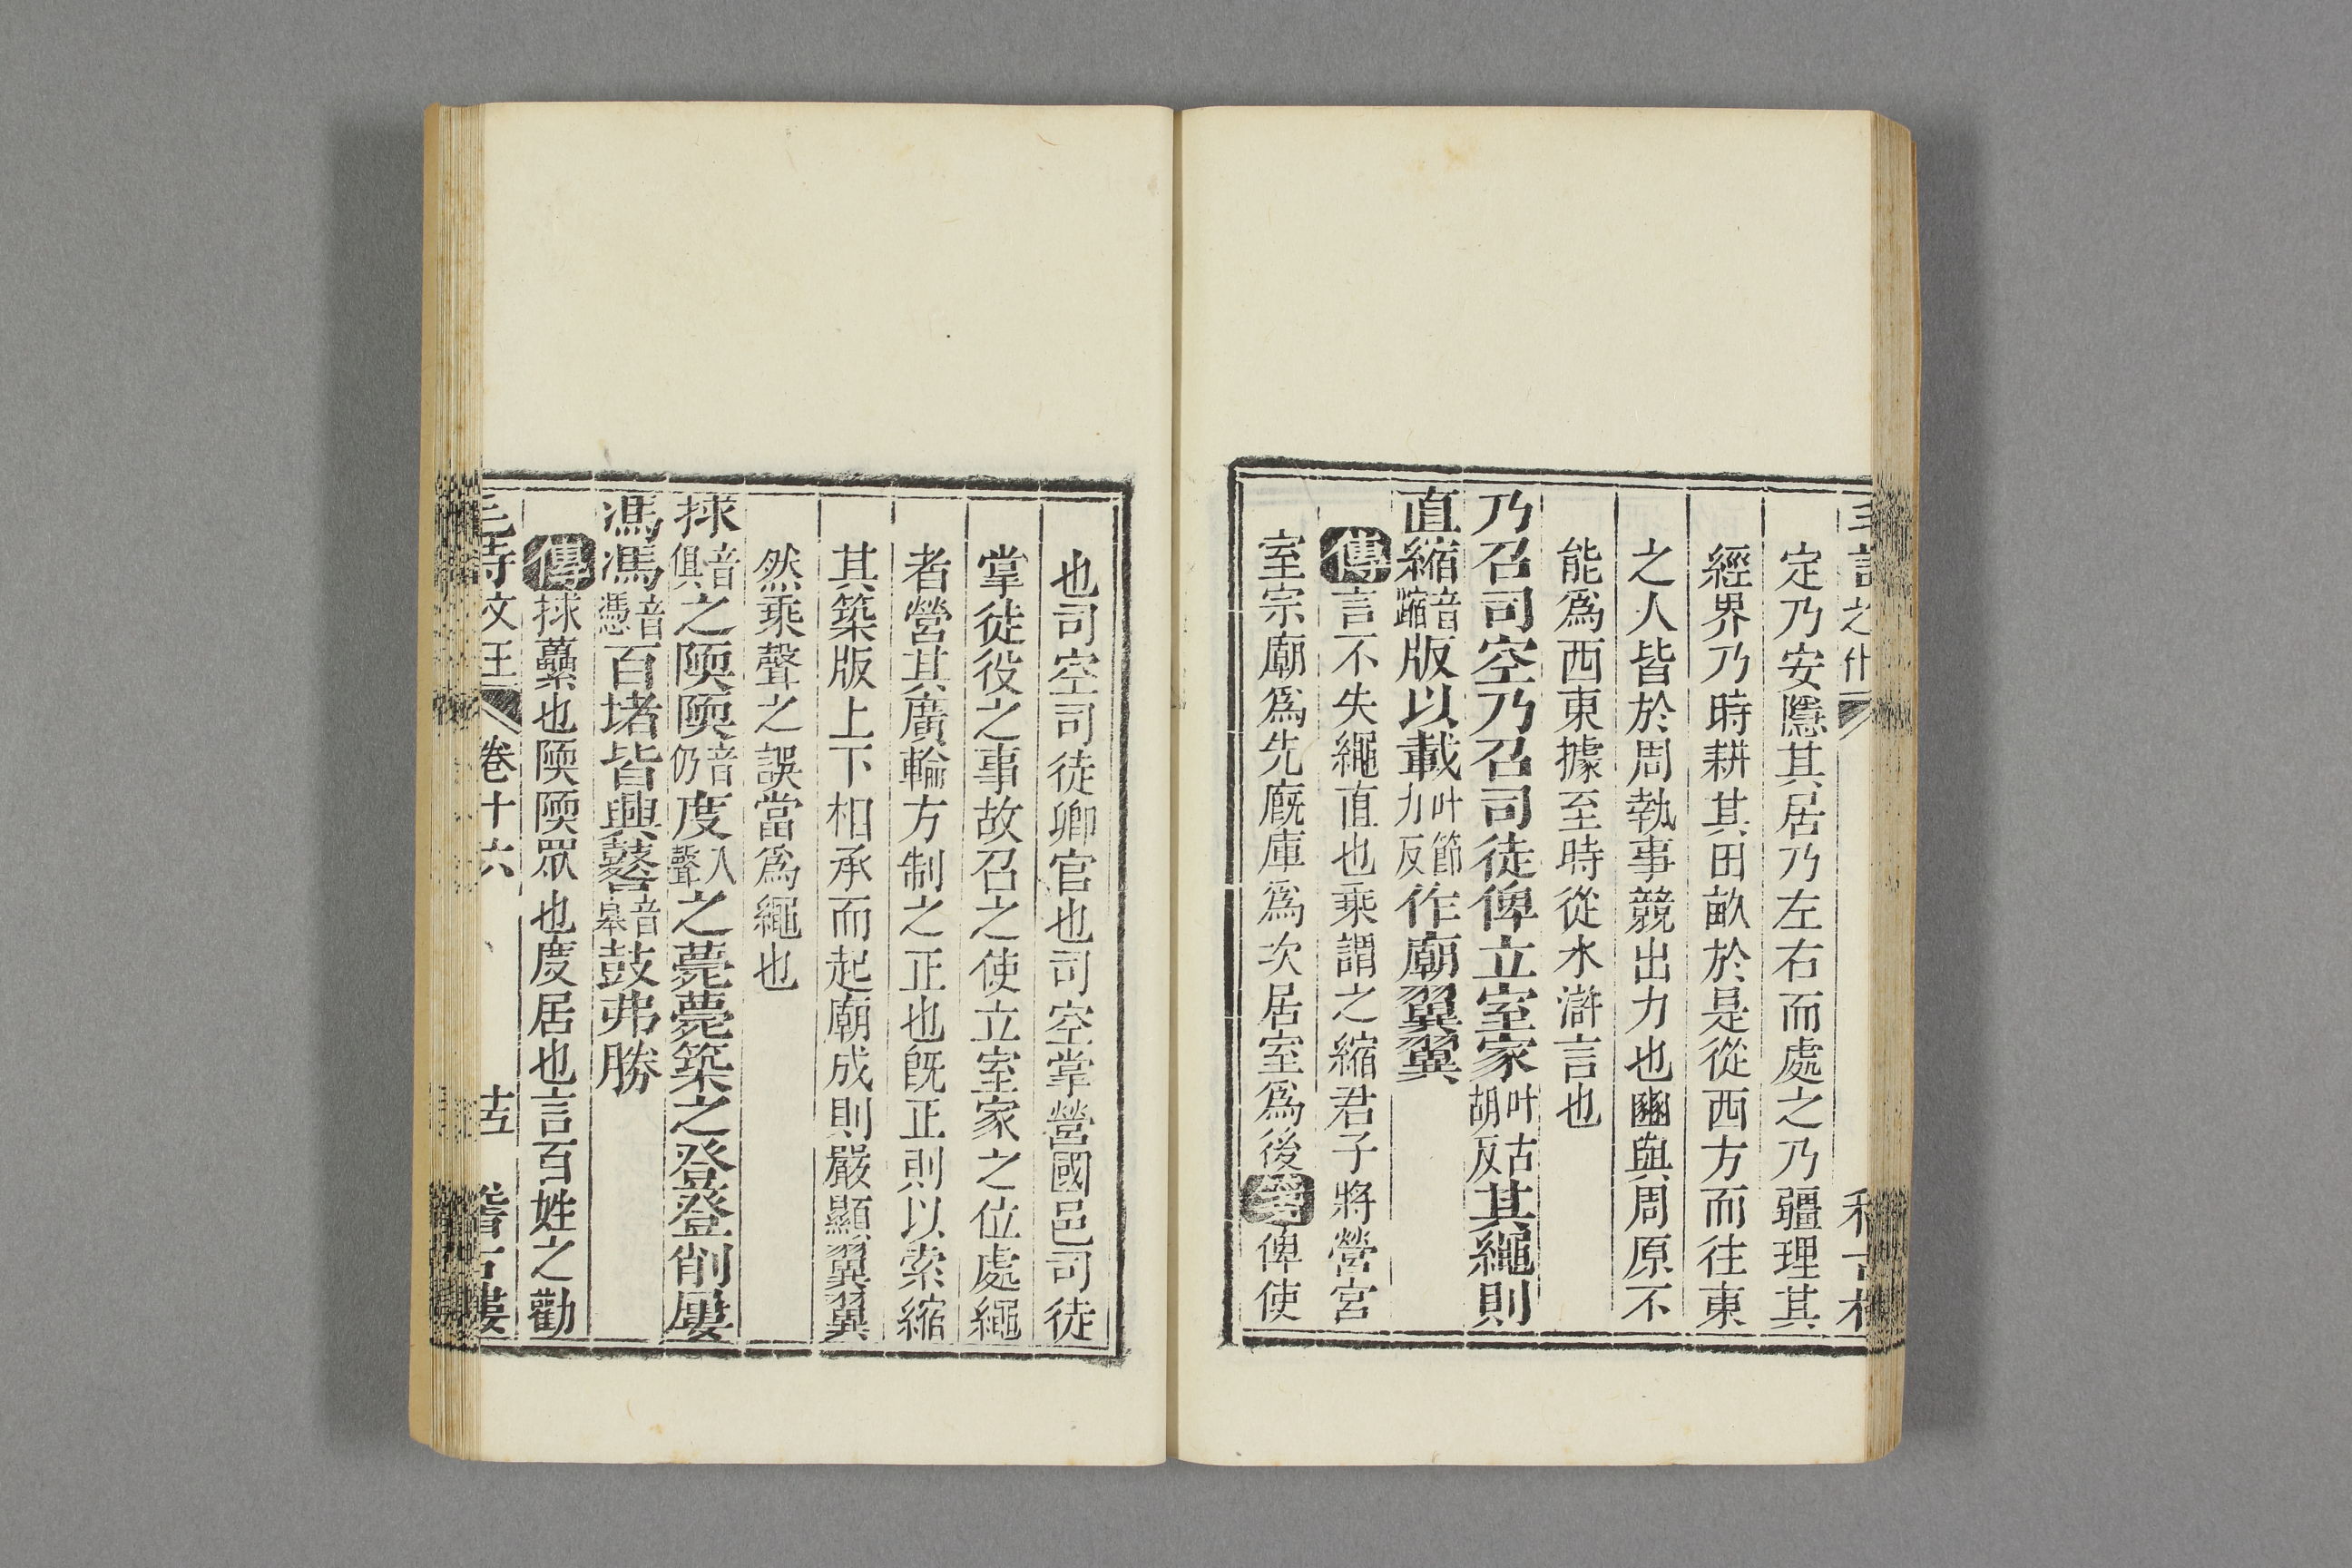 定乃安隱其居乃左右而處之乃疆理其
經界乃時耕其田畝於是從西方而往東
之人皆於周執事競出力也豳與周原不
能爲西東據至時從水滸言也
乃召司空乃召司徒俾立室家叶古胡反其繩則
直縮音蹜版以載叶節力反作廟翼翼
傳言不失繩直也乘謂之縮君子將營宮
室宗廟爲先廐庫爲次居室爲後箋俾使
也司空司徒卿官也司空掌營國邑司徒
掌徒役之事故召之使立室家之位處繩
者營其廣輪方制之正也旣正則以索縮
其築版上下相承而起廟成則嚴顯翼翼
然乘聲之誤當爲繩也
捄音俱之陾陾音仍度入聲之薨薨築之登登削屢
馮馮音憑百堵皆興鼛音皋鼓弗勝
傳捄虆也陾陾眾也度居也言百姓之勸
毛詩文王 卷十六 十五 稽古樓